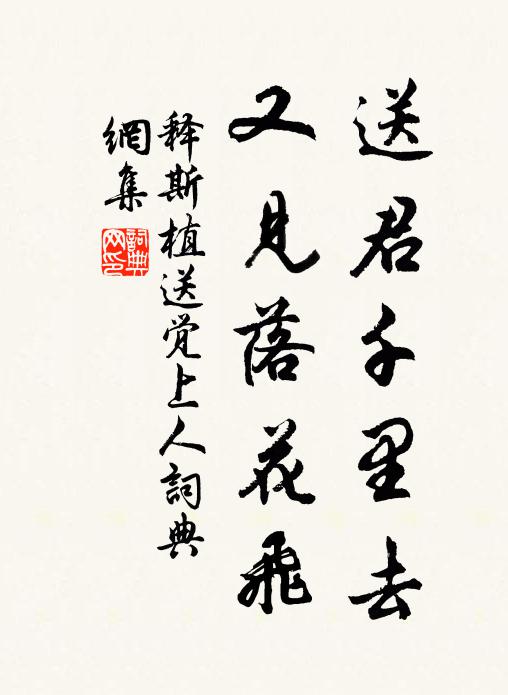 送君千里去
又見落花飛
释斯植送觉上人詞典
網集
詞典
网印